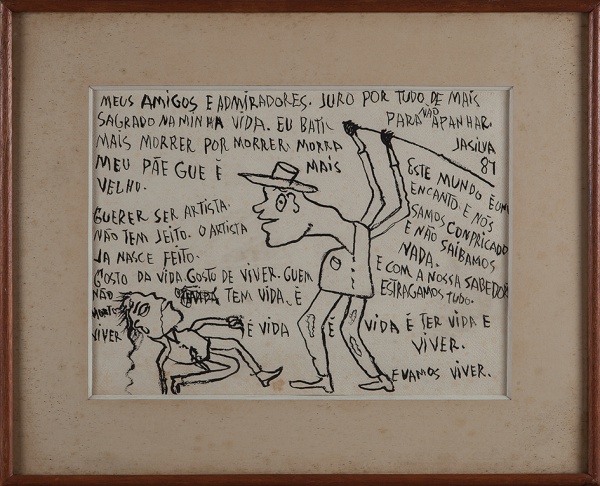 MEUS AMIGOS E ADMIRADORES. JURO POR TUDO DE MAIS
SAGRADO NA MINHA VIDA. EU BATI PARA NÃO APANHAR.
MAIS MORRER POR MORRER, MORRA MAIS
MEU PÃE GUE É
VELHO.
JASILVA
87
GUERER SER ARTISTA.
NÃO TEM JEITO. O ARTISTA
JA NASCE FEITO.
GOSTO DA VIDA. GOSTO DE VIVER. GUEM
NÃO TEM VIDA. É
VIVER É VIDA É VIDA É TER VIDA E
VIVER.
E VAMOS VIVER.
ESTE MUNDO É UM
ENCANTO. E NÓS
SAMOS CONPRICADO
E NÃO SAIBAMOS
NADA.
E COM A NOSSA SABEDOR
ESTRAGAMOS TUDO.